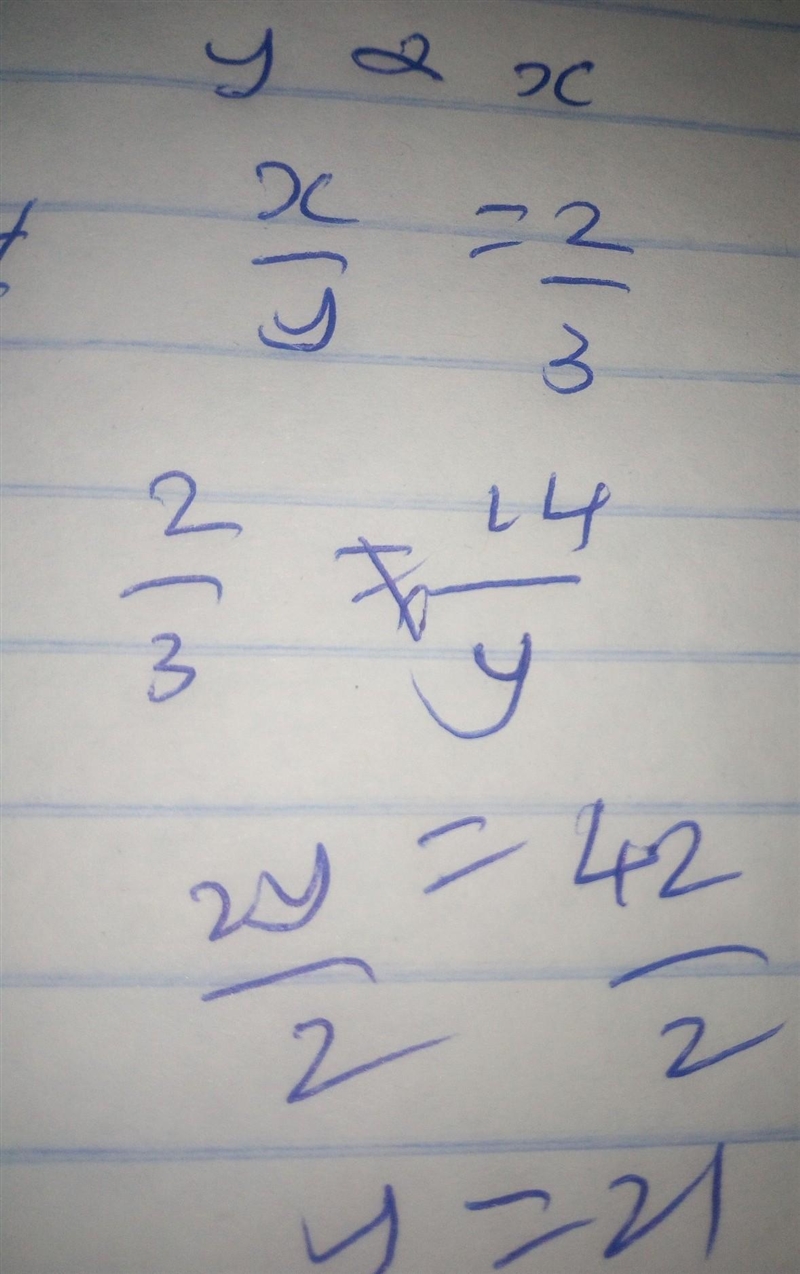 y α x
x/y = 2/3
2/3 = 14/y
2y/2 = 42/2
y = 21